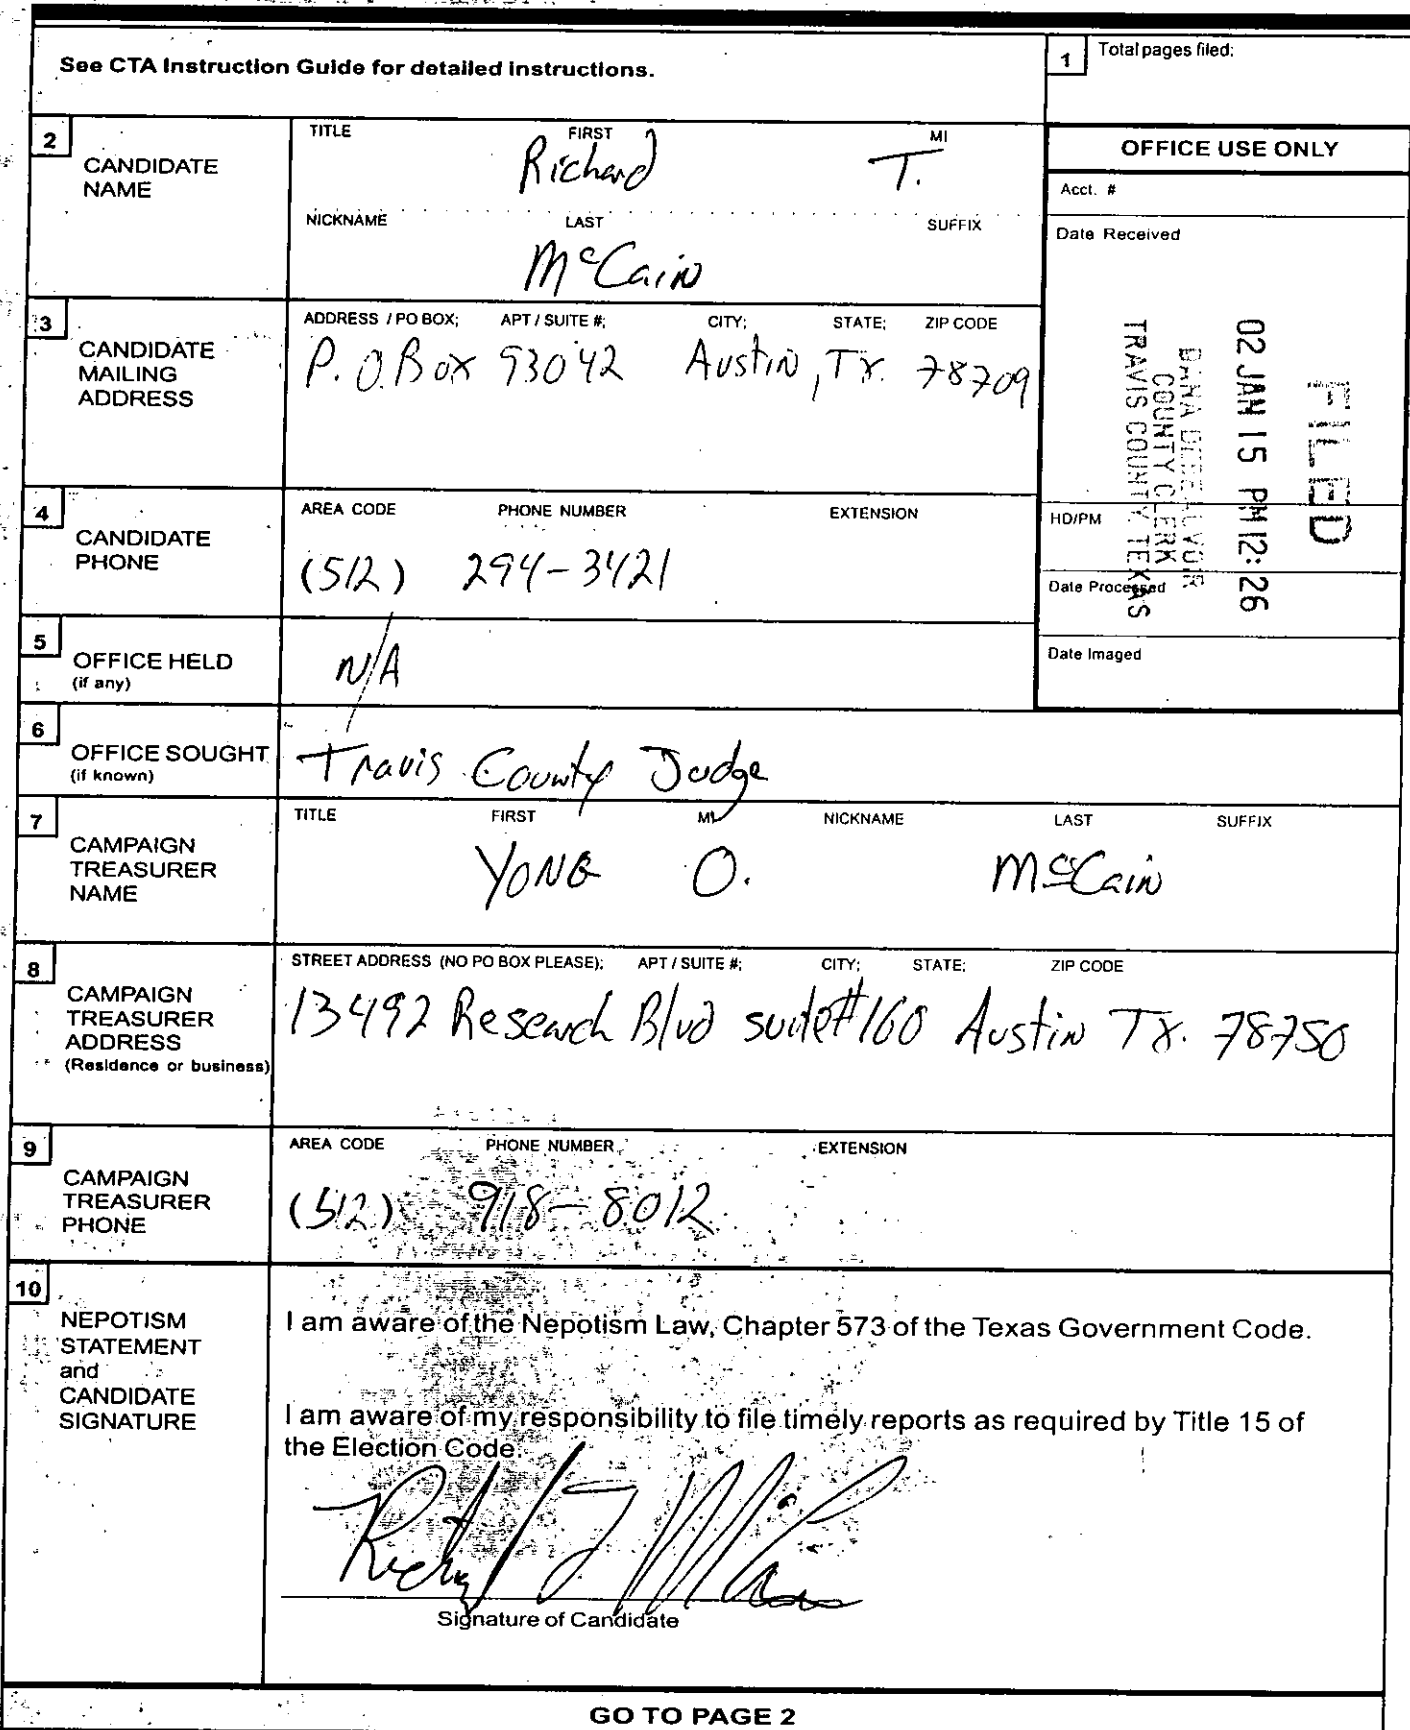 See CTA Instruction Guide for detailed instructions.
1 Total pages filed:
2 CANDIDATE NAME
TITLE FIRST MI
Richard T.
NICKNAME LAST SUFFIX
McCain
OFFICE USE ONLY
Acct. #
Date Received
FILED
02 JAN 15 PM 12:26
DANA
COUNTY CLERK
TRAVIS COUNTY, TEXAS
HD/PM
Date Processed
Date Imaged
3 CANDIDATE MAILING ADDRESS
ADDRESS / PO BOX; APT / SUITE #; CITY; STATE; ZIP CODE
P.O. Box 93042 Austin, Tx. 78709
4 CANDIDATE PHONE
AREA CODE PHONE NUMBER EXTENSION
(512) 294-3421
5 OFFICE HELD (if any)
N/A
6 OFFICE SOUGHT (if known)
Travis County Judge
7 CAMPAIGN TREASURER NAME
TITLE FIRST MI NICKNAME LAST SUFFIX
YONG O. McCain
8 CAMPAIGN TREASURER ADDRESS (Residence or business)
STREET ADDRESS (NO PO BOX PLEASE); APT / SUITE #; CITY; STATE; ZIP CODE
13492 Research Blvd suite#160 Austin Tx. 78750
9 CAMPAIGN TREASURER PHONE
AREA CODE PHONE NUMBER EXTENSION
(512) 918-8012
10 NEPOTISM STATEMENT and CANDIDATE SIGNATURE
I am aware of the Nepotism Law, Chapter 573 of the Texas Government Code.
I am aware of my responsibility to file timely reports as required by Title 15 of
the Election Code.
Richard T McCain
Signature of Candidate
GO TO PAGE 2